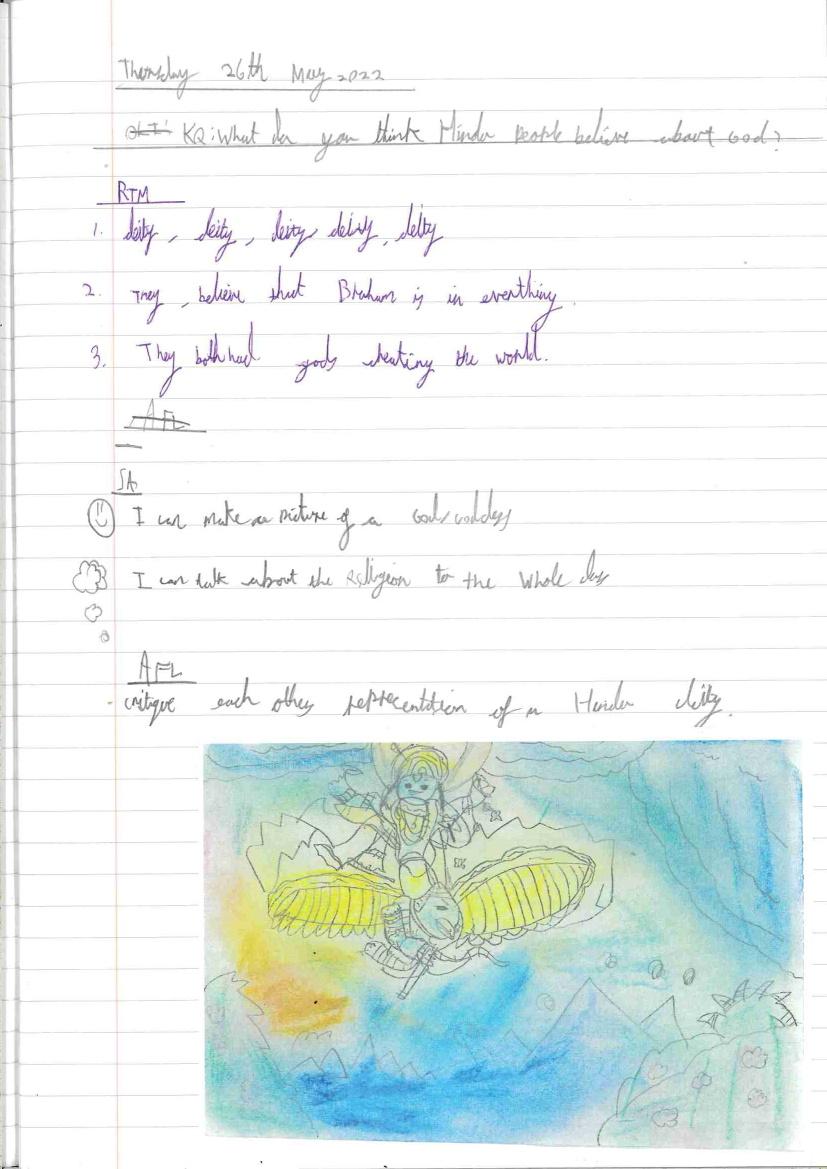 Thursday 26th May 2022
OLI: KQ: What do you think Hindu people believe about God?
RTM
1. deity, deity, deity, deity, deity
2. They, believe that Braham is in everthing.
3. They both had gods cheating the world.
AFL
SA
I can make a picture of a God/Goddess
I can talk about the religion to the whole class
AFL
critique each others reprecentation of a Hindu deity.